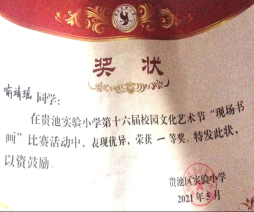 奖状
喻靖瑶同学：
在贵池实验小学第十六届校园文化艺术节“现场书
画”比赛活动中，表现优异，荣获一等奖。特发此状，
以资鼓励。
贵池区实验小学
2021年5月